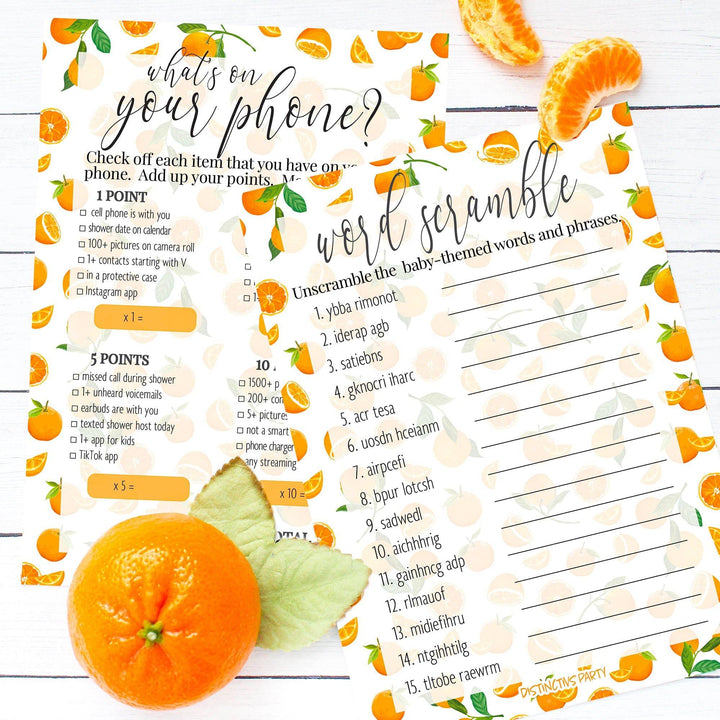 what's on
your phone?
Check off each item that you have on
phone. Add up your points.
1 POINT
☐ cell phone is with you
☐ shower date on calendar
☐ 100+ pictures on camera roll
☐ 1+ contacts starting with V
☐ in a protective case
☐ Instagram app
x 1 =
5 POINTS
☐ missed call during shower
☐ 1+ unheard voicemails
☐ earbuds are with you
☐ texted shower host today
☐ 1+ app for kids
☐ TikTok app
x 5 =
10
☐ 1500+
☐ 200+
☐ 5+ pictures
☐ not a smart
☐ phone charger
any streaming
x 10 =
word scramble
Unscramble the baby-themed words and phrases.
1. ybba rimonot
2. iderap agb
3. satiebns
4. gknocri iharc
5. acr tesa
6. uosdn hceianm
7. airpcefi
8. bpur lotcsh
9. sadwedl
10. aichhhrig
11. gainhncg adp
12. rlmauof
13. midiefihru
14. ntgihhtilg
15. tltobe raewrm
DISTINCTIVS PARTY